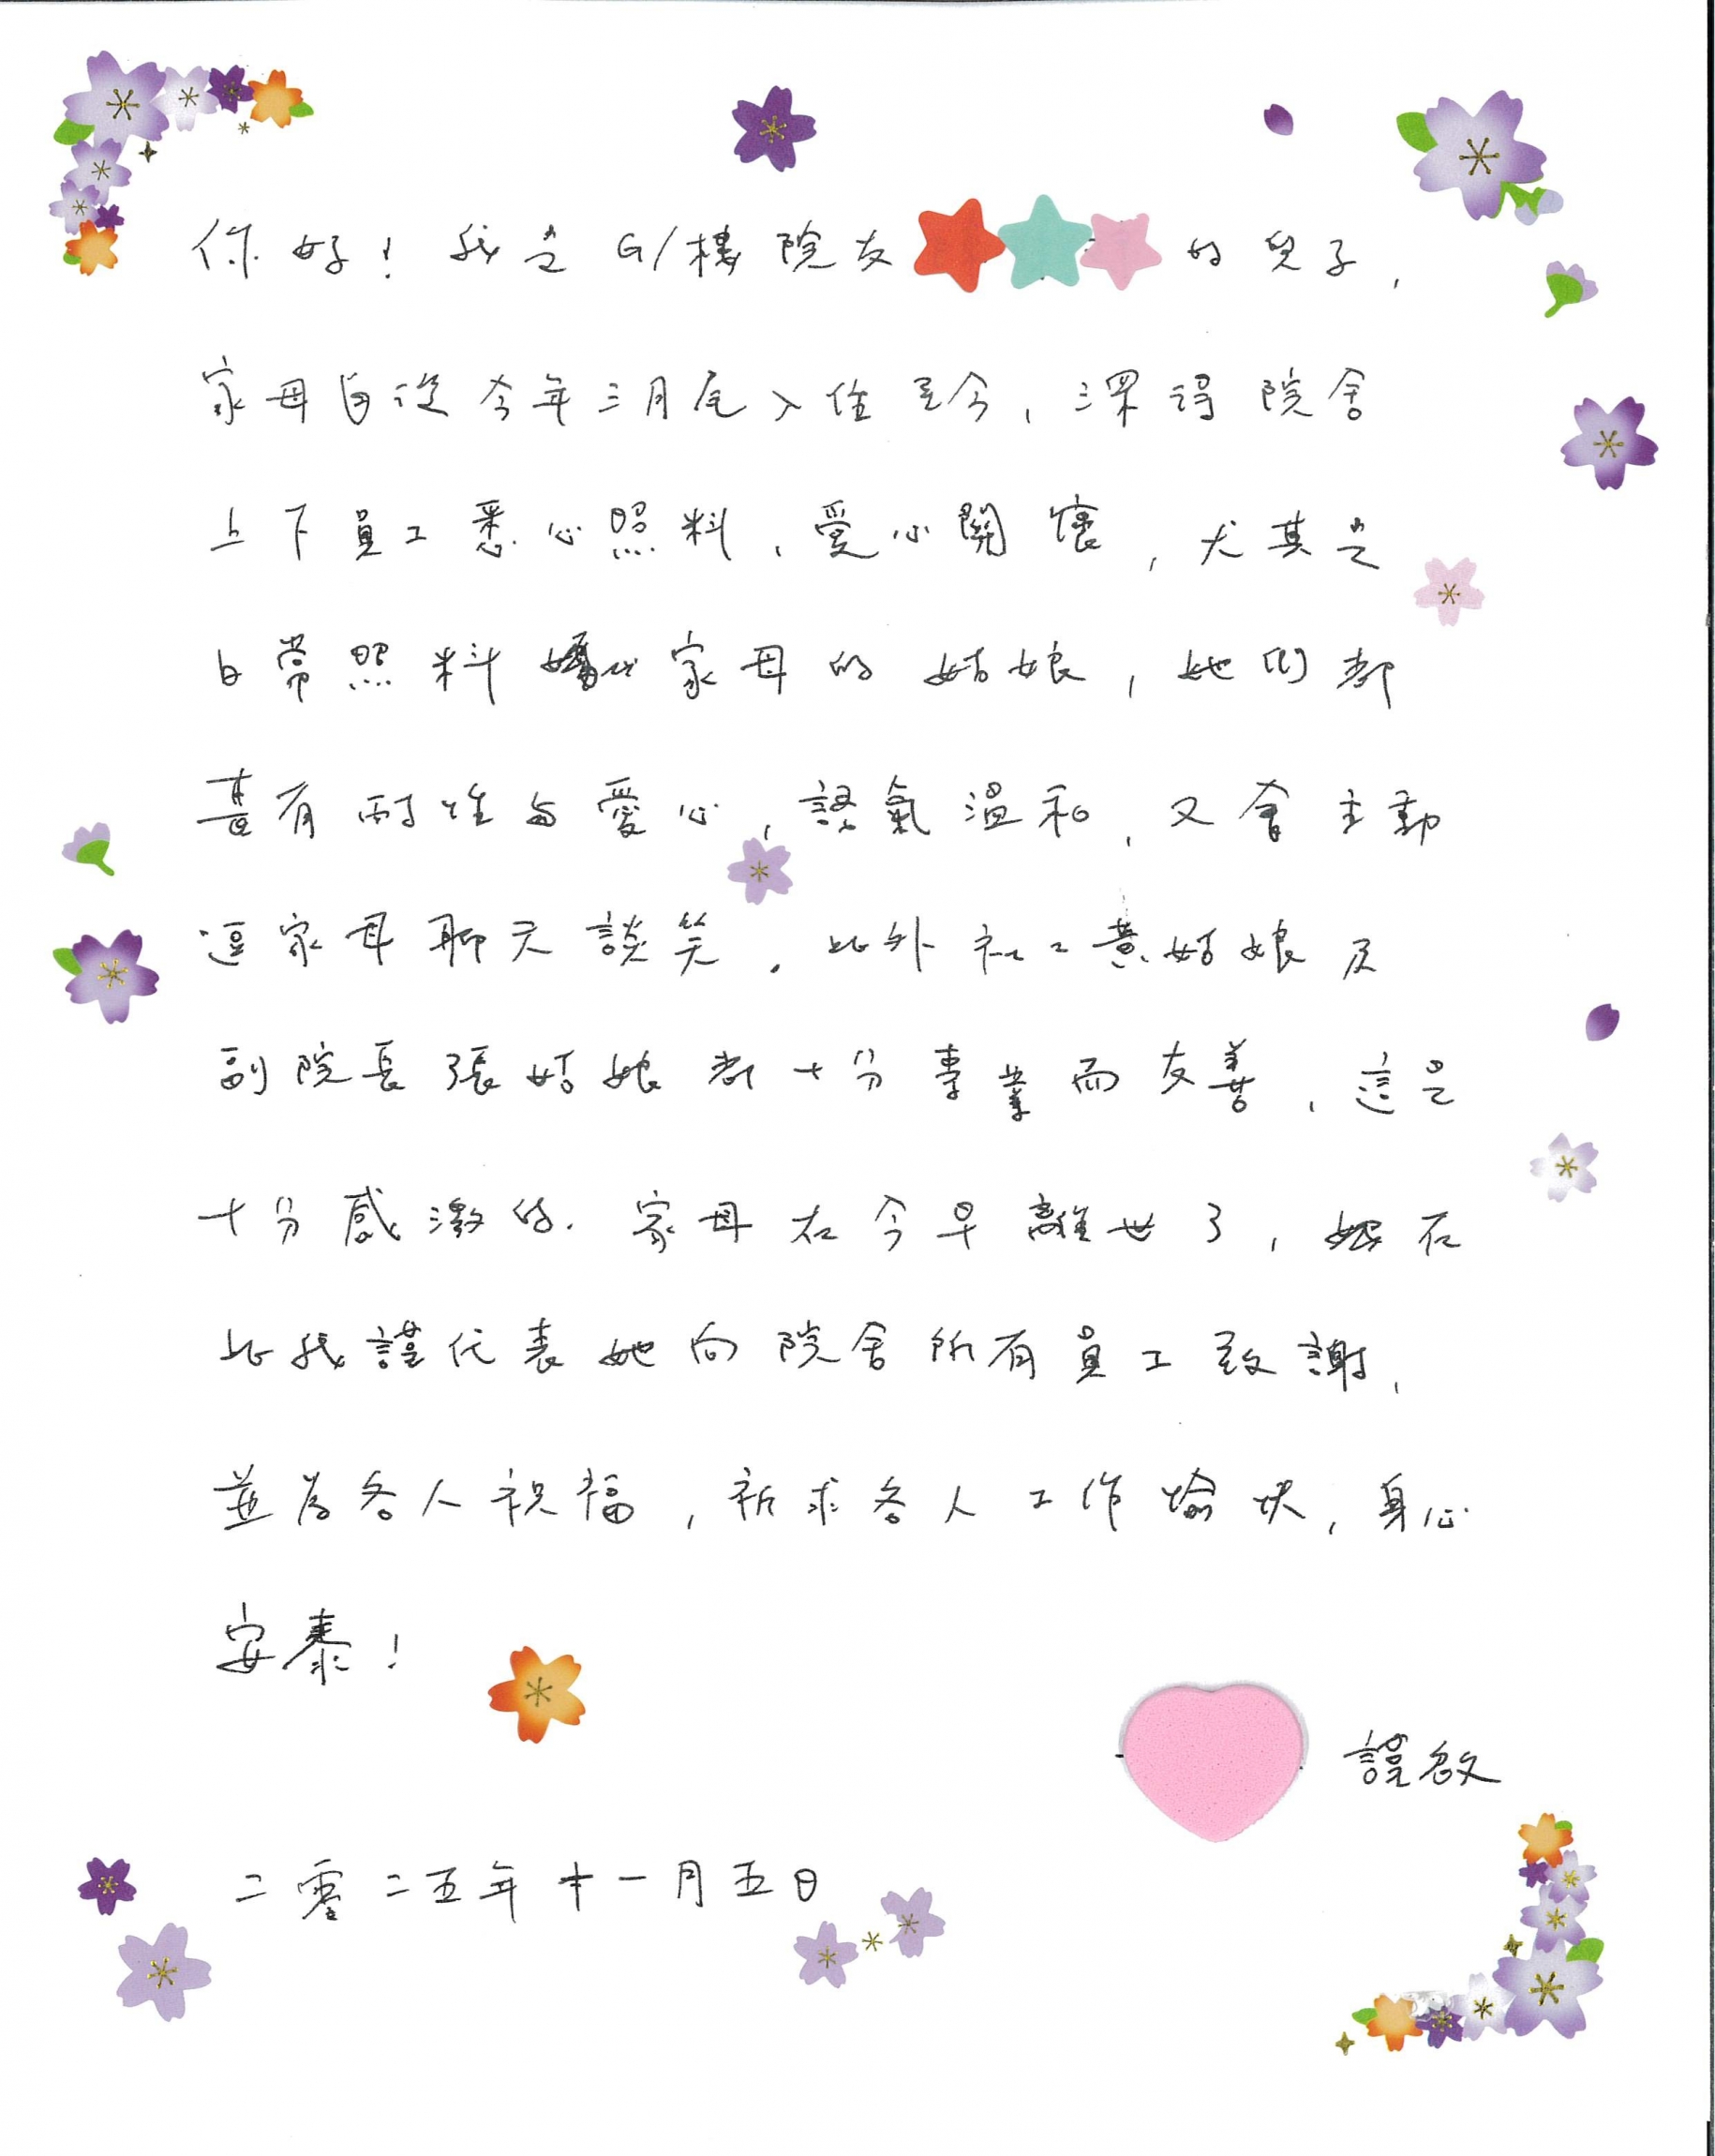 你好！我是G/樓院友 的兒子，
家母自從今年三月尾入住至今，深得院舍
上下員工悉心照料、愛心關懷，尤其是
日常照料家母的姑娘，她們都
甚有耐性與愛心，語氣溫和，又會主動
逗家母聊天談笑。此外社工黃姑娘及
副院長張姑娘都十分專業而友善，這是
十分感激的。家母在今早離世了，在
此我謹代表她向院舍所有員工致謝，
並為各人祝福，祈求各人工作愉快，身心
安泰！
謹啟
二零二五年十一月五日